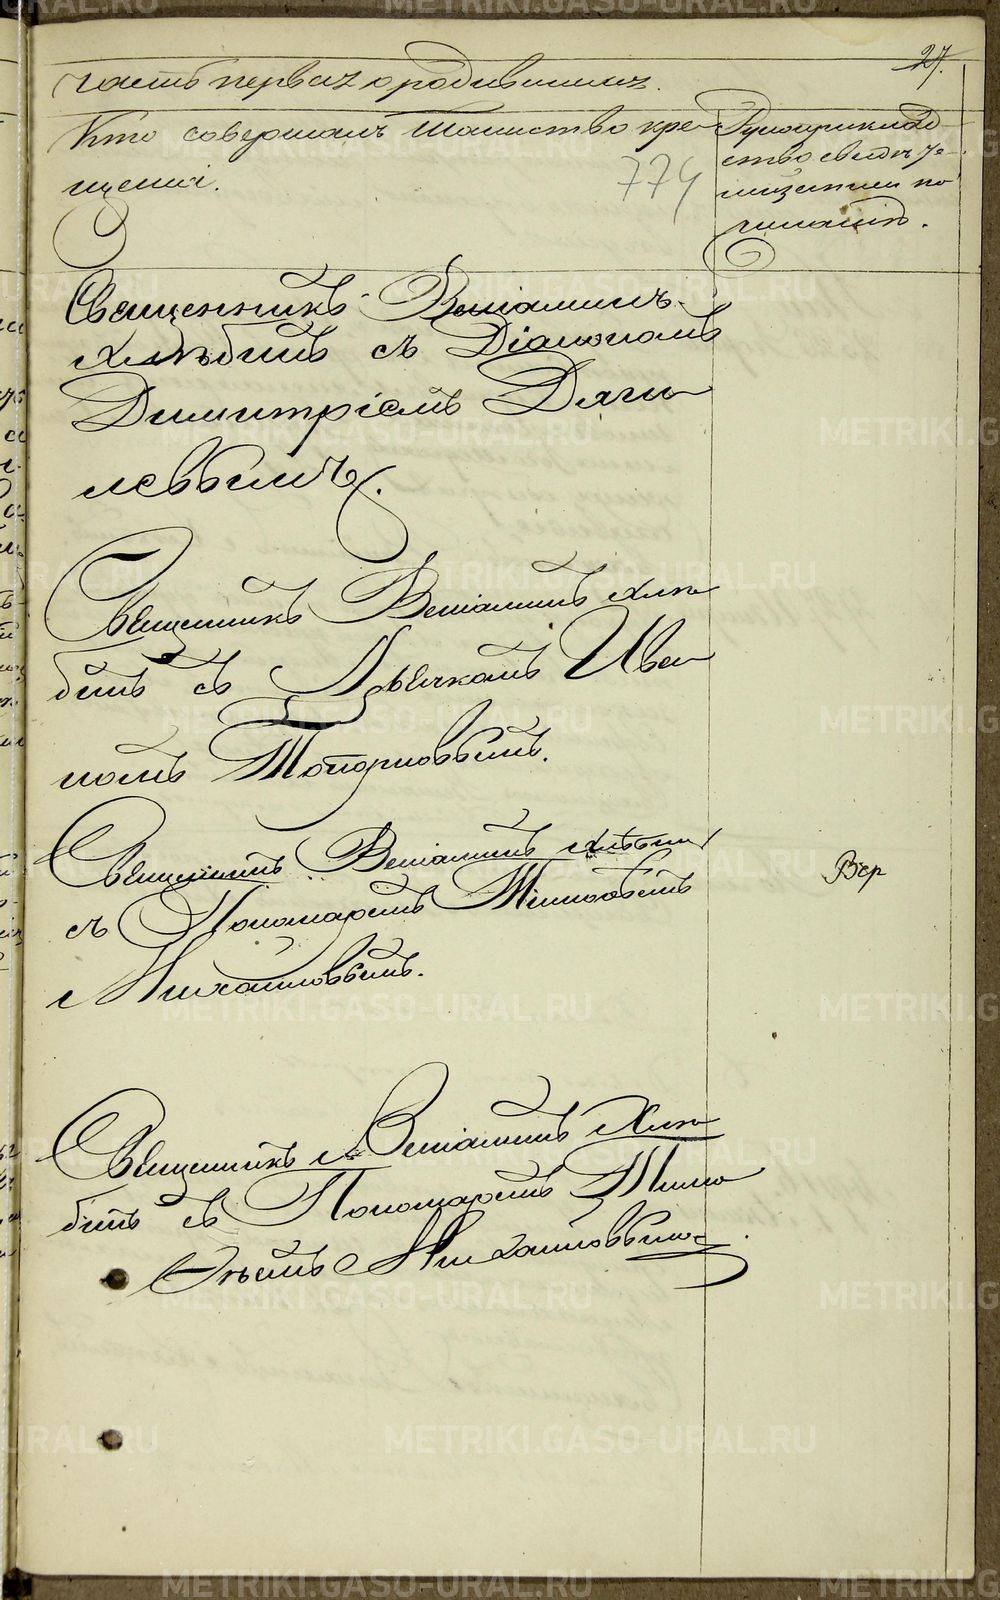 27.
часть первая о родившихся.
Кто совершалъ таинство кре-
щенія.
774
Рукоприклад-
ство свидѣте-
лей записи по
желанію.
Священникъ Веніаминъ
Хлѣбинъ съ Діакономъ
Димитріемъ Дяги-
левымъ.
Священникъ Веніаминъ Хлѣ-
бинъ съ Дьячкомъ Ива-
номъ Топорковымъ.
Священникъ Веніаминъ Хлѣбинъ
съ Пономаремъ Тимофѣемъ
Михайловымъ.
Вѣр
Священникъ Веніаминъ Хлѣ-
бинъ съ Пономаремъ Тимо-
ѳѣемъ Михайловымъ.
METRIKI.GASO-URAL.RU